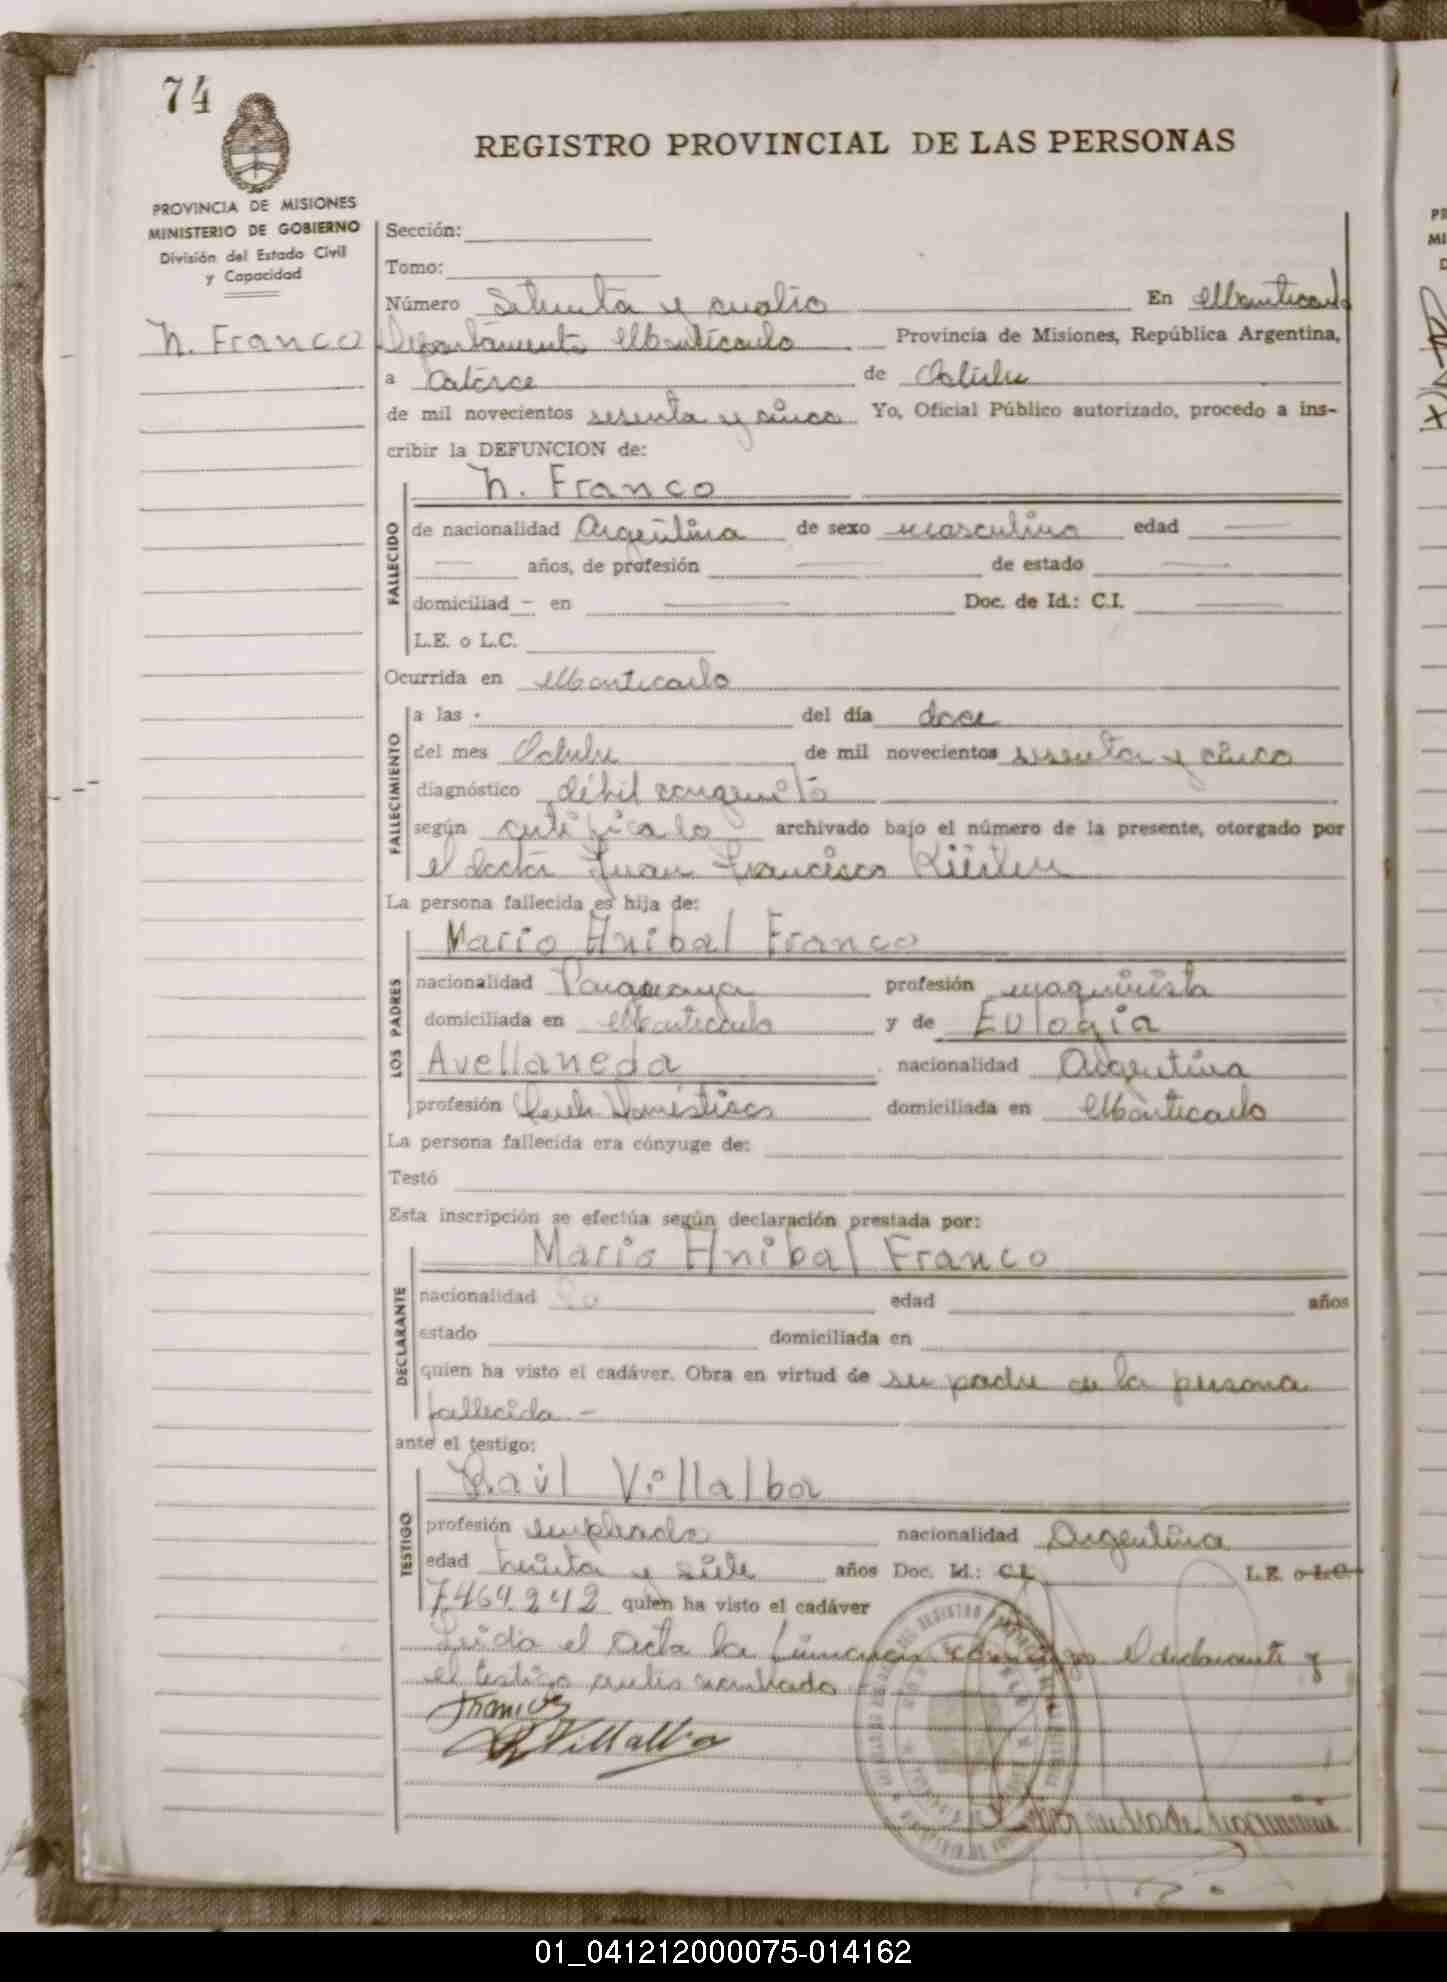 74
REGISTRO PROVINCIAL DE LAS PERSONAS
PROVINCIA DE MISIONES
MINISTERIO DE GOBIERNO
División del Estado Civil
y Capacidad
N. Franco
Sección:
Tomo:
Número Setenta y cuatro En Montecarlo
Departamento Montecarlo Provincia de Misiones, República Argentina,
a Catorce de Octubre
de mil novecientos sesenta y cinco Yo, Oficial Público autorizado, procedo a ins-
cribir la DEFUNCION de:
N. Franco
FALLECIDO
de nacionalidad Argentina de sexo masculino edad —
— años, de profesión — de estado —
domiciliad – en — Doc. de Id.: C.I. —
L.E. o L.C.
Ocurrida en Montecarlo
FALLECIMIENTO
a las - del día doce
del mes Octubre de mil novecientos sesenta y cinco
diagnóstico débil congenito
según certificado archivado bajo el número de la presente, otorgado por
el doctor Juan Francisco
La persona fallecida es hija de:
LOS PADRES
Mario Anibal Franco
nacionalidad Paraguaya profesión maquinista
domiciliada en Montecarlo y de Eulogia
Avellaneda nacionalidad Argentina
profesión Domésticos domiciliada en Montecarlo
La persona fallecida era cónyuge de:
Testó
Esta inscripción se efectúa según declaración prestada por:
DECLARANTE
Mario Anibal Franco
nacionalidad edad años
estado domiciliada en
quien ha visto el cadáver. Obra en virtud de ser padre de la persona
fallecida.-
ante el testigo:
TESTIGO
Raúl Villalba
profesión empleado nacionalidad Argentina
edad treinta y siete años Doc. Id.: C.I. L.E. o L.C.
7.464.242 quien ha visto el cadáver
Leida el acta la firman conmigo el declarante y
el testigo antes nombrado
Franco
R Villalba
01_041212000075-014162